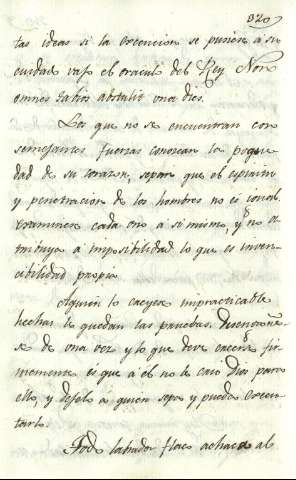 320
tas ideas si la execucion se pusiere á su
cuidado vajo el oraculo del Rey. Non
omnes labios abstulit una dies.
Los que no se encuentran con
semejantes fuerzas conozcan la peque
dad de su corazon, sepan que el espiritu
y penetracion de los hombres no es igual.
examinese cada uno a si mismo, y no a
tribuya a imposibilidad lo que es inven
cibilidad propia
Alguien lo creyera impracticable
hechas le quedan las pruebas. Desengañe
se de una vez y lo que deve creer fir
memente es que a el no le crió Dios para
ello, y dejelo a quien sepa y pueda execu
tarlo.
Todo labrador flaco achaca al